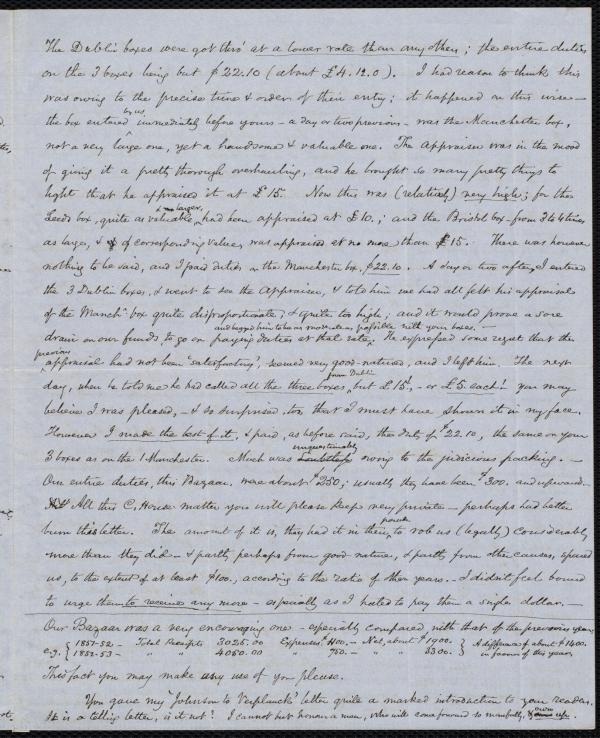 The Dublin boxes were got thro' at a lower rate than any other; the entire duties
on the 3 boxes being but $22.10 (about £4.12.0). I had reason to think this
was owing to the precise time & order of their entry; it happened on this wise—
by us
the box entered immediately before yours – a day or two previous – was the Manchester box,
not a very large one, yet a handsome & valuable one. The Appraiser was in the mood
of giving it a pretty thorough overhauling, and he brought so many pretty things to
light that he appraised it at £15. Now this was (relatively) very high; for the
larger,
Leeds box, quite as valuable, had been appraised at £10.; and the Bristol box – from 3 to 4 times
as large, & of corresponding value, was appraised at no more than £15. There was however
nothing to be said, and I paid duties on the Manchester box, $22.10. A day or two after, I entered
the 3 Dublin boxes, & went to see the Appraiser, & told him we had all felt his appraisal
of the Manchr box quite disproportionate, & quite too high; and it would prove a sore
and begged him to be as moderate as possible with your boxes. —
drain on our funds to go on paying duties at that rate; He expressed some regret that the
previous
appraisal had not been 'satisfactory', seemed very good-natured, and I left him. The next
from Dublin
day, when he told me he had called all the three boxes, but £15, – or £5 each! you may
believe I was pleased, – & so surprised, too, that I must have shown it in my face.
However I made the best of it, & paid, as before said, the duty of $22.10, the same on your
unquestionably
3 boxes as on the 1 Manchester. Much was doubtless owing to the judicious packing. —
Our entire duties, this Bazaar, were about $250; usually they have been $300. and upward.—
All this C. House matter you will please keep very private – perhaps had better
burn this letter. The amount of it is, they had it in their power to rob us (legally) considerably
more than they did – & partly perhaps from good nature, & partly from other causes, spared
us, to the extent of at least $100, according to the ratio of other years. – I didn't feel bound
to urge them to receive any more – especially as I hated to pay them a single dollar. —
Our Bazaar was a very encouraging one – especially compared with that of the previous year,
e.g. { 1851-52 – Total Receipts 3025.00 Expenses $1100. – Net, about $1900. } A difference of about $1400.
{ 1852-53 – " " 4050.00 " 750. – " " 3300. } in favour of this year.
This fact you may make any use of you please.
You gave my 'Johnson to Verplanck' letter quite a marked introduction to your readers.
It is a telling letter, is it not? I cannot but honour a man, who will come forward so manfully, & own up.